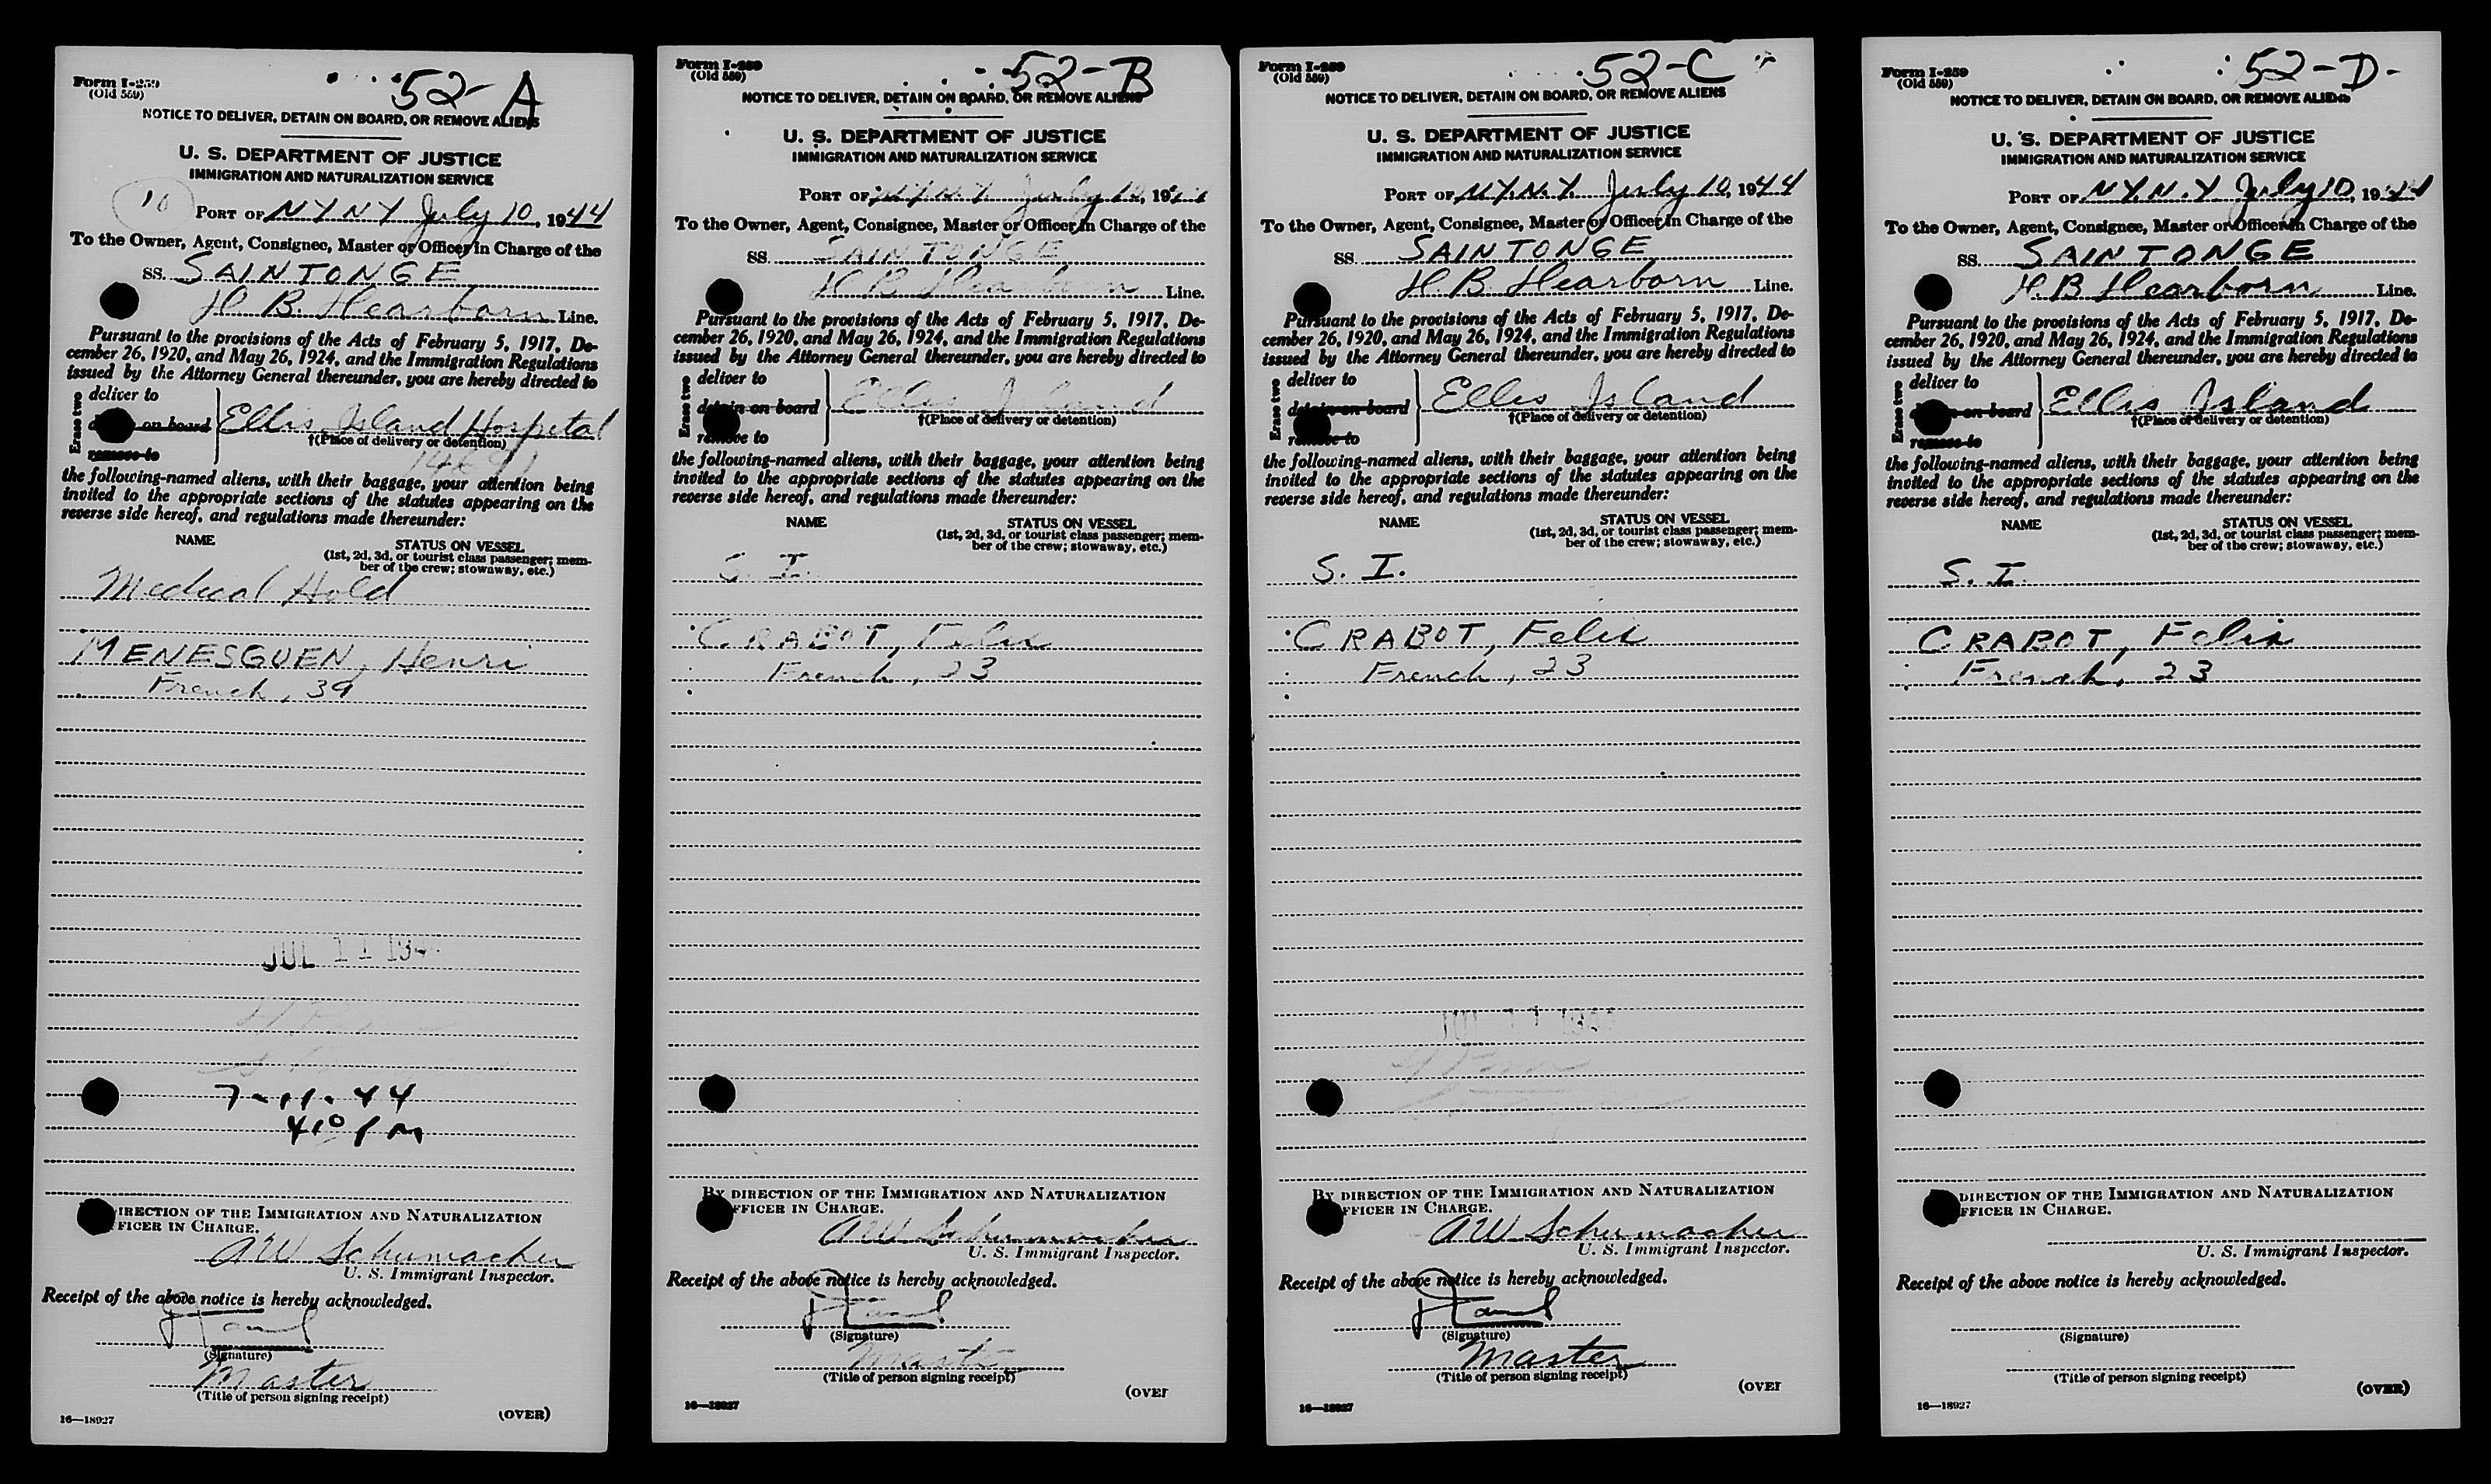 Form I-259
(Old 559)
52-A
NOTICE TO DELIVER, DETAIN ON BOARD, OR REMOVE ALIENS
U. S. DEPARTMENT OF JUSTICE
IMMIGRATION AND NATURALIZATION SERVICE
10
PORT OF N Y N Y July 10, 1944
To the Owner, Agent, Consignee, Master or Officer in Charge of the
SS. SAINTONGE
H. B. Hearborn Line.
Pursuant to the provisions of the Acts of February 5, 1917, De-
cember 26, 1920, and May 26, 1924, and the Immigration Regulations
issued by the Attorney General thereunder, you are hereby directed to
Erase two
deliver to
on board
remove to
Ellis Island Hospital
†(Place of delivery or detention)
the following-named aliens, with their baggage, your attention being
invited to the appropriate sections of the statutes appearing on the
reverse side hereof, and regulations made thereunder:
NAME
STATUS ON VESSEL
(1st, 2d, 3d, or tourist class passenger; mem-
ber of the crew; stowaway, etc.)
Medical Hold
MENESGUEN, Henri
French, 39
JUL 11 194
7-11-44
4:10 PM
DIRECTION OF THE IMMIGRATION AND NATURALIZATION
OFFICER IN CHARGE.
AW Schumacher
U. S. Immigrant Inspector.
Receipt of the above notice is hereby acknowledged.
(Signature)
Master
(Title of person signing receipt)
16—18927
(OVER)
Form I-259
(Old 559)
52-B
NOTICE TO DELIVER, DETAIN ON BOARD, OR REMOVE ALIENS
U. S. DEPARTMENT OF JUSTICE
IMMIGRATION AND NATURALIZATION SERVICE
PORT OF N.Y.N.Y. July 10, 1944
To the Owner, Agent, Consignee, Master or Officer in Charge of the
SS. SAINTONGE
H B Hearborn Line.
Pursuant to the provisions of the Acts of February 5, 1917, De-
cember 26, 1920, and May 26, 1924, and the Immigration Regulations
issued by the Attorney General thereunder, you are hereby directed to
Erase two
deliver to
detain on board
remove to
Ellis Island
†(Place of delivery or detention)
the following-named aliens, with their baggage, your attention being
invited to the appropriate sections of the statutes appearing on the
reverse side hereof, and regulations made thereunder:
NAME
STATUS ON VESSEL
(1st, 2d, 3d, or tourist class passenger; mem-
ber of the crew; stowaway, etc.)
S. I.
CRABOT, Felix
French, 23
BY DIRECTION OF THE IMMIGRATION AND NATURALIZATION
OFFICER IN CHARGE.
AW Schumacher
U. S. Immigrant Inspector.
Receipt of the above notice is hereby acknowledged.
(Signature)
Master
(Title of person signing receipt)
(OVER
16—18927
Form I-259
(Old 559)
52-C
NOTICE TO DELIVER, DETAIN ON BOARD, OR REMOVE ALIENS
U. S. DEPARTMENT OF JUSTICE
IMMIGRATION AND NATURALIZATION SERVICE
PORT OF N.Y.N.Y. July 10, 1944
To the Owner, Agent, Consignee, Master or Officer in Charge of the
SS. SAINTONGE
H. B. Hearborn Line.
Pursuant to the provisions of the Acts of February 5, 1917, De-
cember 26, 1920, and May 26, 1924, and the Immigration Regulations
issued by the Attorney General thereunder, you are hereby directed to
Erase two
deliver to
detain on board
remove to
Ellis Island
†(Place of delivery or detention)
the following-named aliens, with their baggage, your attention being
invited to the appropriate sections of the statutes appearing on the
reverse side hereof, and regulations made thereunder:
NAME
STATUS ON VESSEL
(1st, 2d, 3d, or tourist class passenger; mem-
ber of the crew; stowaway, etc.)
S. I.
CRABOT, Felix
French, 23
JUL 11 1944
BY DIRECTION OF THE IMMIGRATION AND NATURALIZATION
OFFICER IN CHARGE.
AW Schumacher
U. S. Immigrant Inspector.
Receipt of the above notice is hereby acknowledged.
(Signature)
Master
(Title of person signing receipt)
(OVER
16—18927
Form I-259
(Old 559)
52-D-
NOTICE TO DELIVER, DETAIN ON BOARD, OR REMOVE ALIENS
U. S. DEPARTMENT OF JUSTICE
IMMIGRATION AND NATURALIZATION SERVICE
PORT OF N.Y.N.Y July 10, 1944
To the Owner, Agent, Consignee, Master or Officer in Charge of the
SS. SAINTONGE
H. B Hearborn Line.
Pursuant to the provisions of the Acts of February 5, 1917, De-
cember 26, 1920, and May 26, 1924, and the Immigration Regulations
issued by the Attorney General thereunder, you are hereby directed to
Erase two
deliver to
on board
remove to
Ellis Island
†(Place of delivery or detention)
the following-named aliens, with their baggage, your attention being
invited to the appropriate sections of the statutes appearing on the
reverse side hereof, and regulations made thereunder:
NAME
STATUS ON VESSEL
(1st, 2d, 3d, or tourist class passenger; mem-
ber of the crew; stowaway, etc.)
S. I.
CRABOT, Felix
French, 23
DIRECTION OF THE IMMIGRATION AND NATURALIZATION
OFFICER IN CHARGE.
U. S. Immigrant Inspector.
Receipt of the above notice is hereby acknowledged.
(Signature)
(Title of person signing receipt)
(OVER)
16—18927